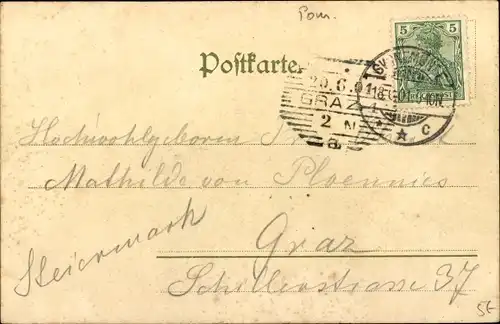 Pom.
5 5
Postkarte
20.6.01
GRAZ
2 N
a
* * c
Hochwohlgeboren
Mathilde von Ploennies
Graz
Steiermark
Schillerstrasse 37
5€